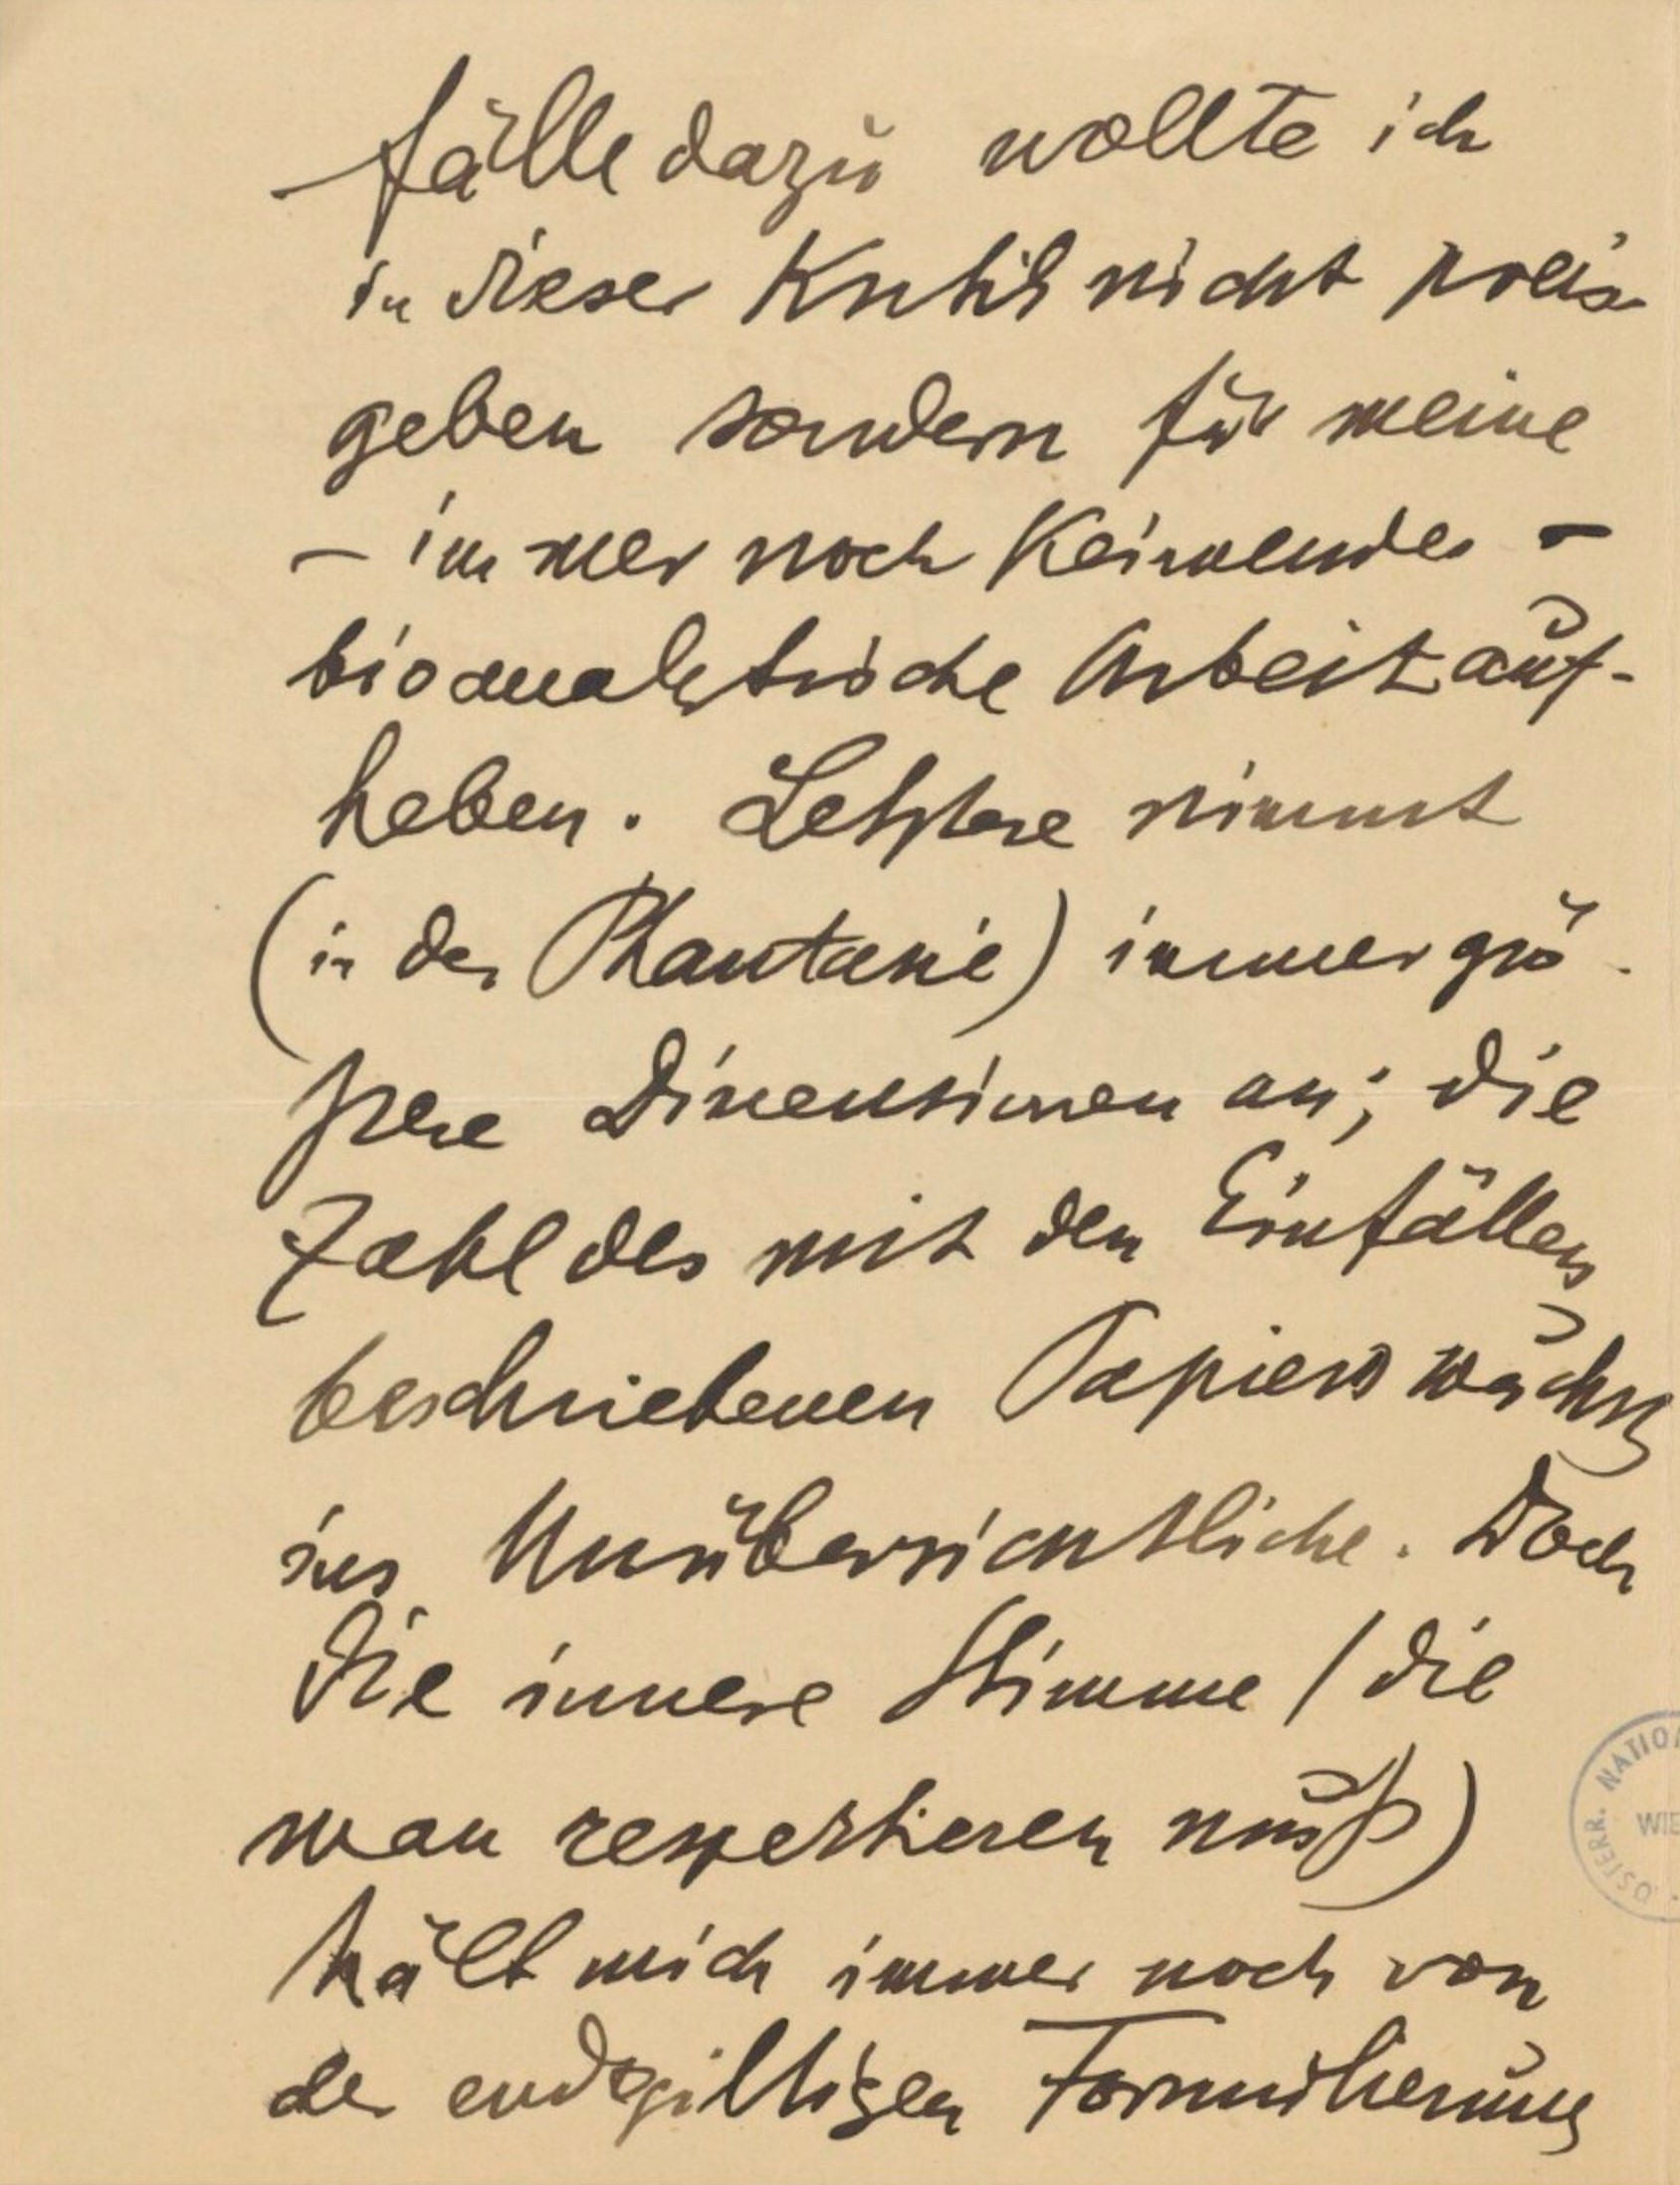 fälle dazu wollte ich
in dieser Kritik nicht preis
geben sondern für meine
– immer noch keimende –
bioanalytische Arbeit auf-
heben. Letztere nimmt
(in der Phantasie) immer grö-
ßere Dimensionen an; die
Zahl des mit den Einfällen
beschriebenen Papiers wächst
ins Unübersichtliche. Doch
die innere Stimme (die
man respektieren muß)
hält mich immer noch von
der endgiltigen Formulierung
ÖSTERR. NATIO
WIE